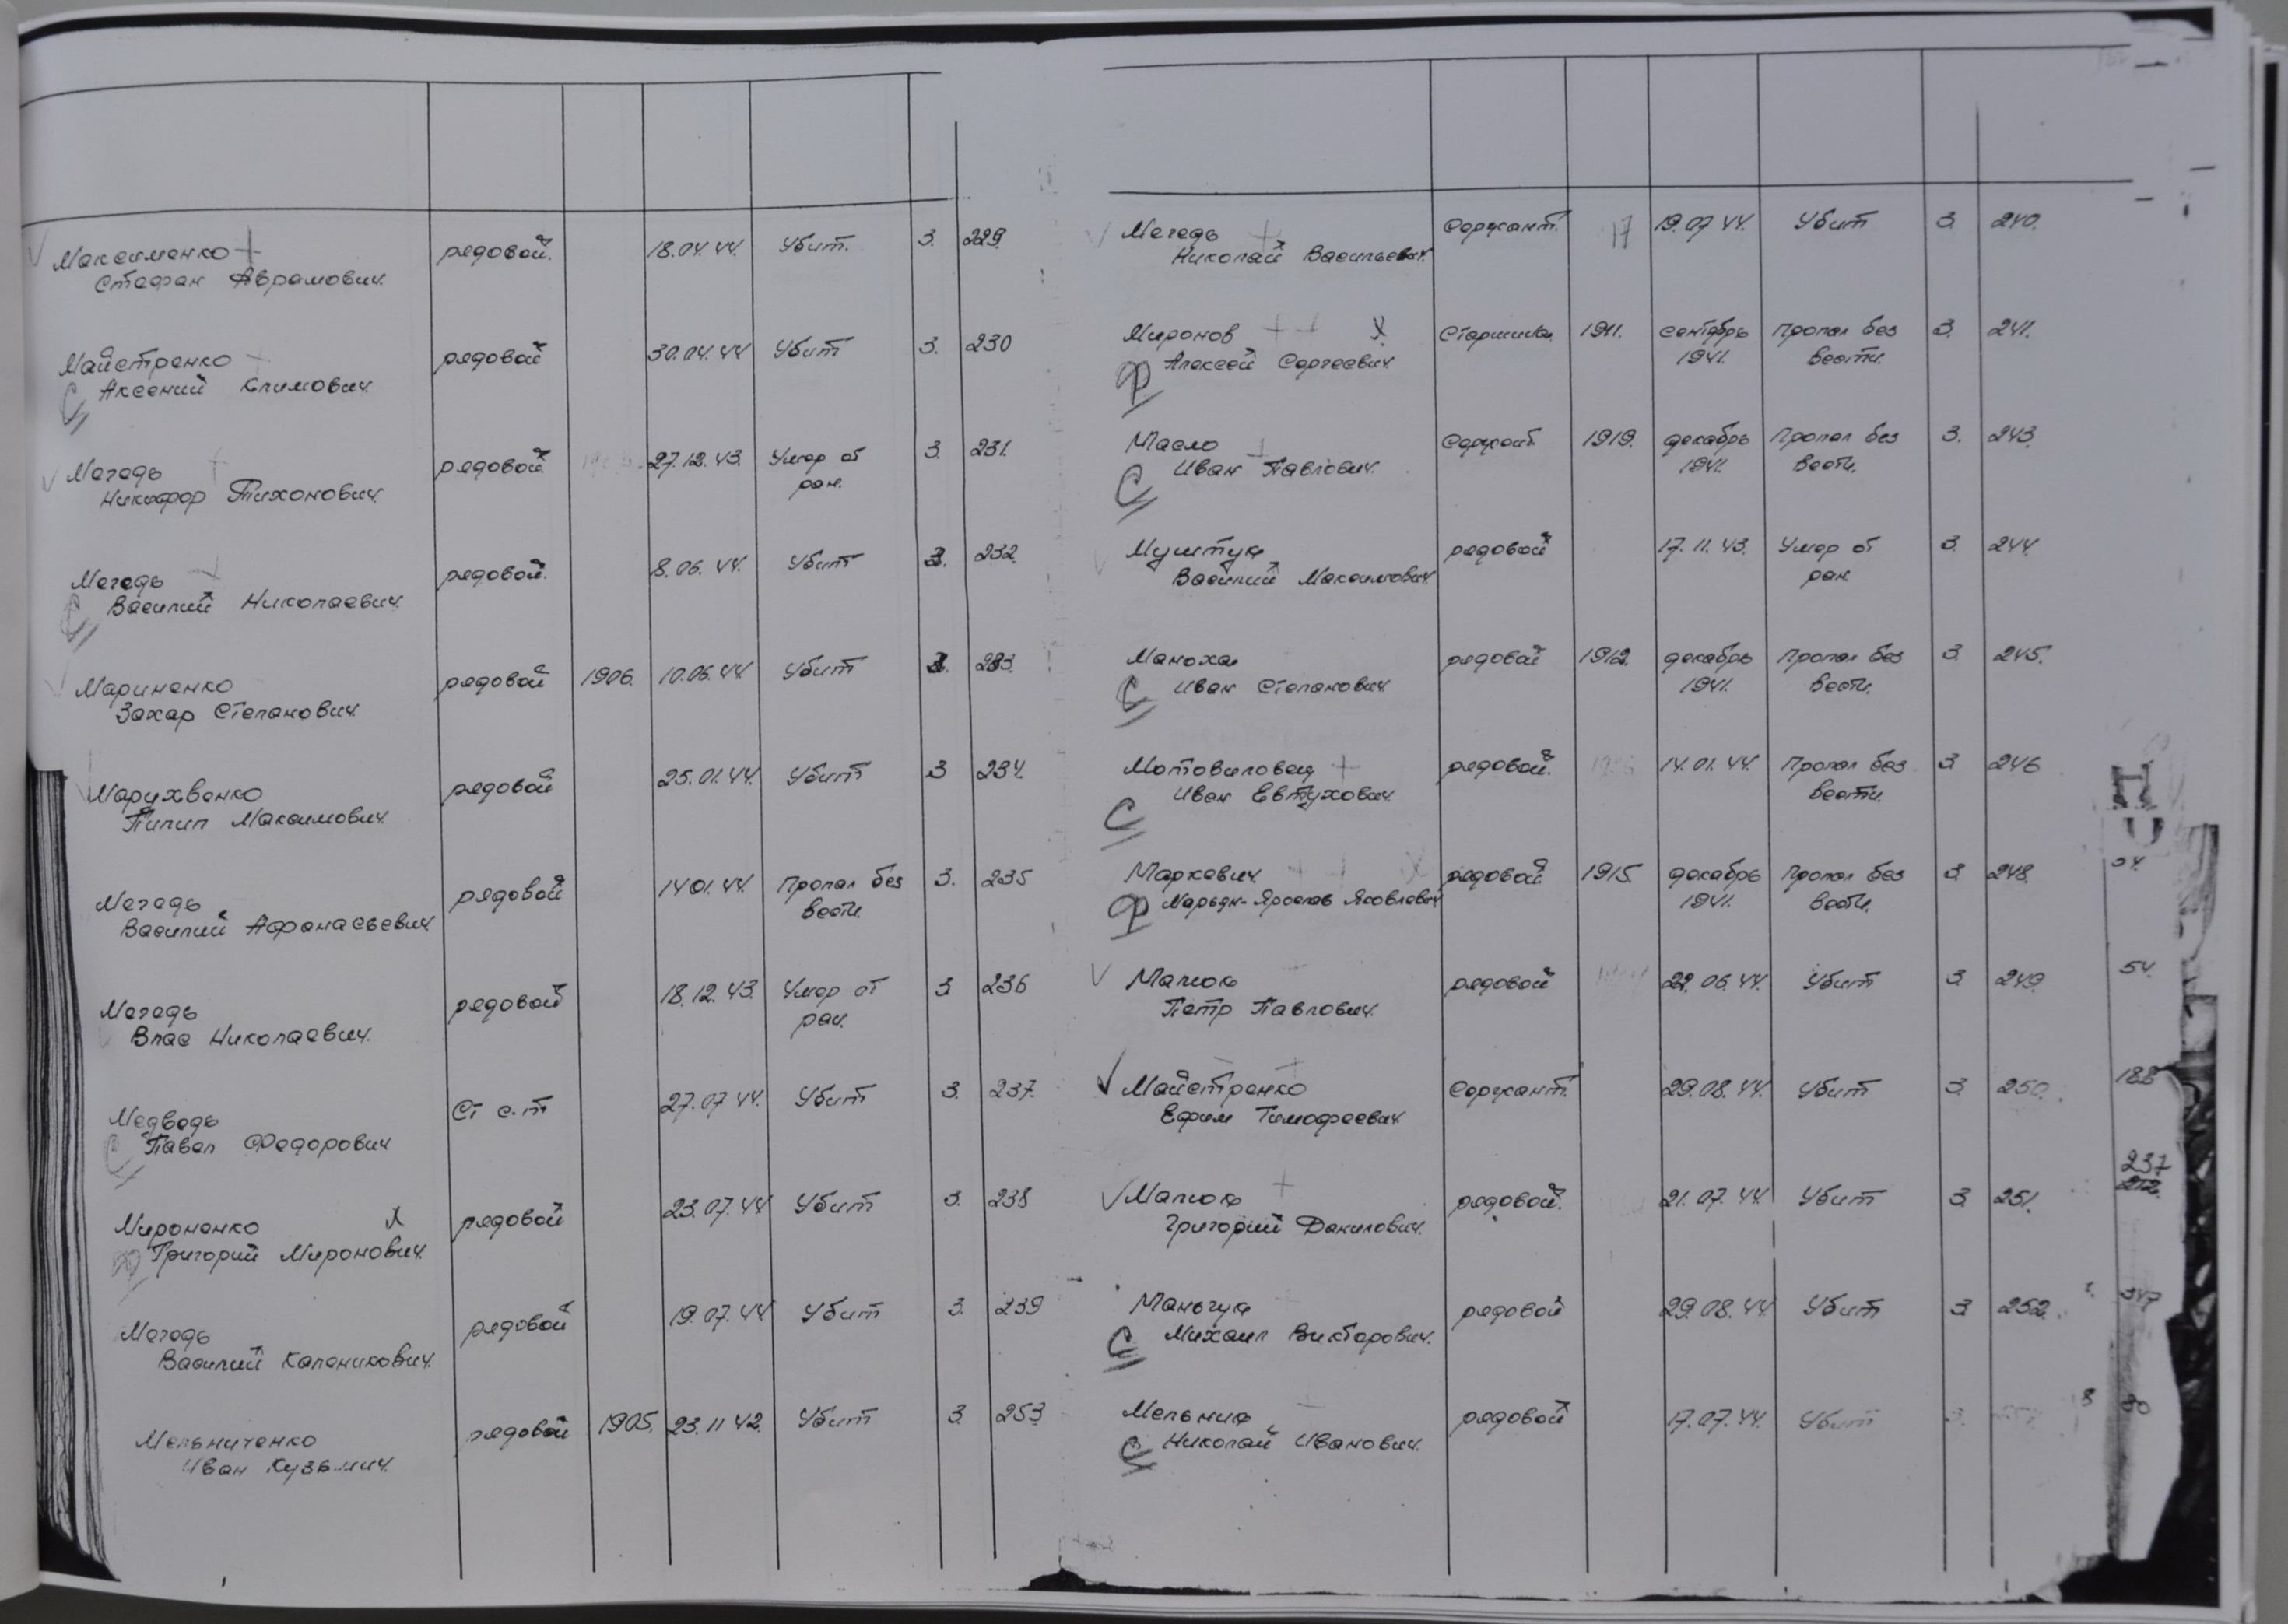 Максименко рядовой. 18.04.44. Убит. 3. 229.
Стефан Аврамович.
Майстренко рядовой 30.04.44 Убит 3. 230
Аксений Климович.
Мегедь рядовой. 27.12.43. Умер от 3. 231.
Никифор Тихонович. ран.
Мегедь рядовой. 8.06.44. Убит 3. 232.
Василий Николаевич.
Мариненко рядовой 1906. 10.06.44 Убит 3. 233.
Захар Степанович.
Марухвенко рядовой 25.01.44. Убит 3 234.
Пилип Максимович.
Мегедь рядовой 14.01.44. Пропал без 3. 235
Василий Афанасьевич вести.
Мегедь рядовой 18.12.43. Умер от 3 236
Влас Николаевич. ран.
Медведь Ст с-т 27.07.44. Убит 3. 237.
С Павел Федорович
Мироненко х рядовой 23.07.44 Убит 3. 238
Григорий Миронович.
Мегедь рядовой 19.07.44 Убит 3. 239
Василий Каленикович.
Мельниченко рядовой 1905. 23.11.42. Убит 3. 253
Иван Кузьмич.
Мегедь Сержант. 17 19.07.44. Убит 3. 240.
Николай Васильевич.
Миронов х Старшина 1911. сентябрь Пропал без 3. 241.
Ф Алексей Сергеевич. 1941. вести.
Масло Сержант 1919. декабрь Пропал без 3. 243.
С Иван Павлович. 1941. вести.
Муштук рядовой 17.11.43. Умер от 3. 244.
Василий Максимович ран.
Маноха рядовой 1912. декабрь Пропал без 3. 245.
С Иван Степанович. 1941. вести.
Мотовиловец рядовой. 14.01.44. Пропал без 3. 246
С Иван Евтухович. вести.
Маркевич х рядовой 1915. декабрь Пропал без 3. 248.
Ф Марьян-Ярослав Яковлевич 1941. вести.
Малюк рядовой 22.06.44. Убит 3 249. 54.
Петр Павлович.
Майстренко Сержант. 29.08.44. Убит 3 250. 188
Ефим Тимофеевич.
237
Малюк рядовой. 21.07.44. Убит 3 251.
Григорий Данилович.
Маньчук рядовой 29.08.44 Убит 3 252. 347
С Михаил Викторович.
Мельник рядовой 17.07.44. Убит
С Николай Иванович.